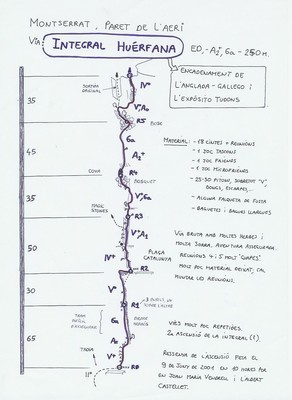 MONTSERRAT, PARET DE L'AERI
VIA INTEGRAL HUÉRFANA ED,-A2+, 6a - 250 m.
ENCADENAMENT DE
L'ANGLADA-GALLEGO I
L'EXPÓSITO TUDONS
SORTIDA
ORIGINAL
IV+
35
V+, A0
R5
BOSC
6a
A2+
45
COVA
R4
BOSQUET
V+, 6a
R3
35
V+, A1
PLAÇA
CATALUNYA
IV+
50
R2
V+
30
R1
6a
A2
65
V+
R0
II+
MATERIAL: - 18 CINTES + REUNIONS
- 1 JOC TASCONS
- 1 JOC FRIENDS
- 1 JOC MICROFRIENDS
- 25-30 PITONS, SOBRETOT "V",
- ALGUNA FALQUETA DE FUSTA
- BAGUETES I BAGUES LLARGUES
VIA BRUTA AMB MOLTES HERBES I
MOLTA SORRA. AVENTURA ASSEGURADA.
REUNIONS 4 I 5 MOLT "GUAPES"
MOLT POC MATERIAL DEIXAT, CAL
MUNTAR LES REUNIONS.
VIES MOLT POC REPETIDES.
2a ASCENSIÓ DE LA INTEGRAL (?).
RESSENYA DE L'ASCENSIÓ FETA EL
9 DE JUNY DE 2001 EN 10 HORES PER
EN JOAN MARIA VENDRELL I L'ALBERT
CASTELLET.